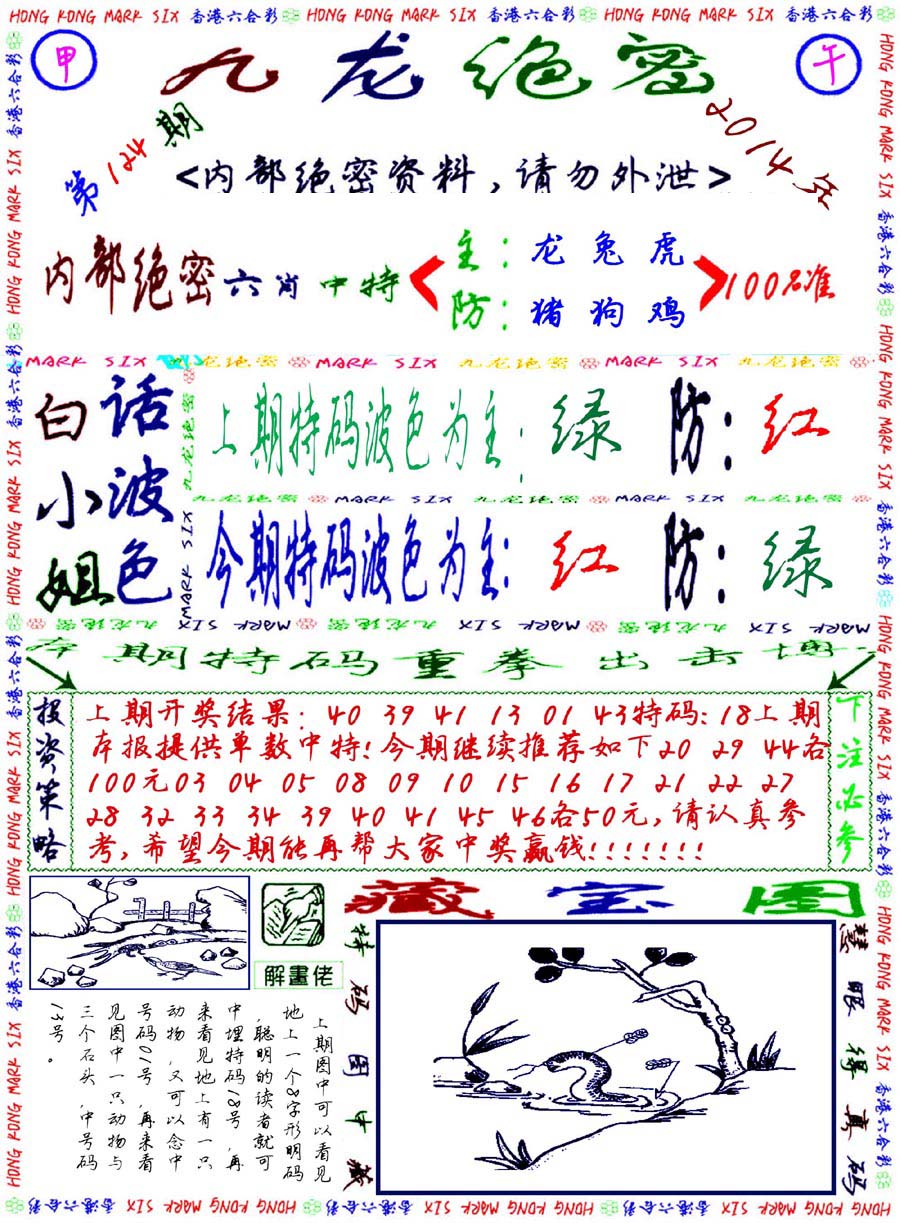 HONG KONG MARK SIX 香港六合彩 HONG KONG MARK SIX 香港六合彩 HONG KONG MARK SIX 香港六合彩
甲
九龙绝密
午
第124期
2014年
<内部绝密资料,请勿外泄>
内部绝密六肖中特
主:龙兔虎
防:猪狗鸡
100%准
MARK SIX 九龙绝密 MARK SIX 九龙绝密 MARK SIX 九龙绝密
白小姐
话波色
上期特码波色为主:绿 防:红
九龙绝密 MARK SIX 九龙绝密 MARK SIX 九龙绝密
今期特码波色为主:红 防:绿
九龙绝密 MARK SIX 九龙绝密 MARK SIX 九龙绝密 MARK SIX
本期特码重拳出击博
投资策略
上期开奖结果:40 39 41 13 01 43特码:18上期
本报提供单数中特!今期继续推荐如下20 29 44各
100元03 04 05 08 09 10 15 16 17 21 22 27
28 32 33 34 39 40 41 45 46各50元,请认真参
考,希望今期能再帮大家中奖赢钱!!!!!!!
下注必参
解畫佬
藏宝图
特码图中藏
慧眼得真码
上期图中可以看见
地上一个8字形明码
,聪明的读者就可
中埋特码18号,再
来看见地上有一只
动物,又可以念中
号码01号,再来看
见图中一只动物与
三个石头,中号码
13号。
HONG KONG MARK SIX 香港六合彩 HONG KONG MARK SIX 香港六合彩 HONG KONG MARK SIX 香港六合彩